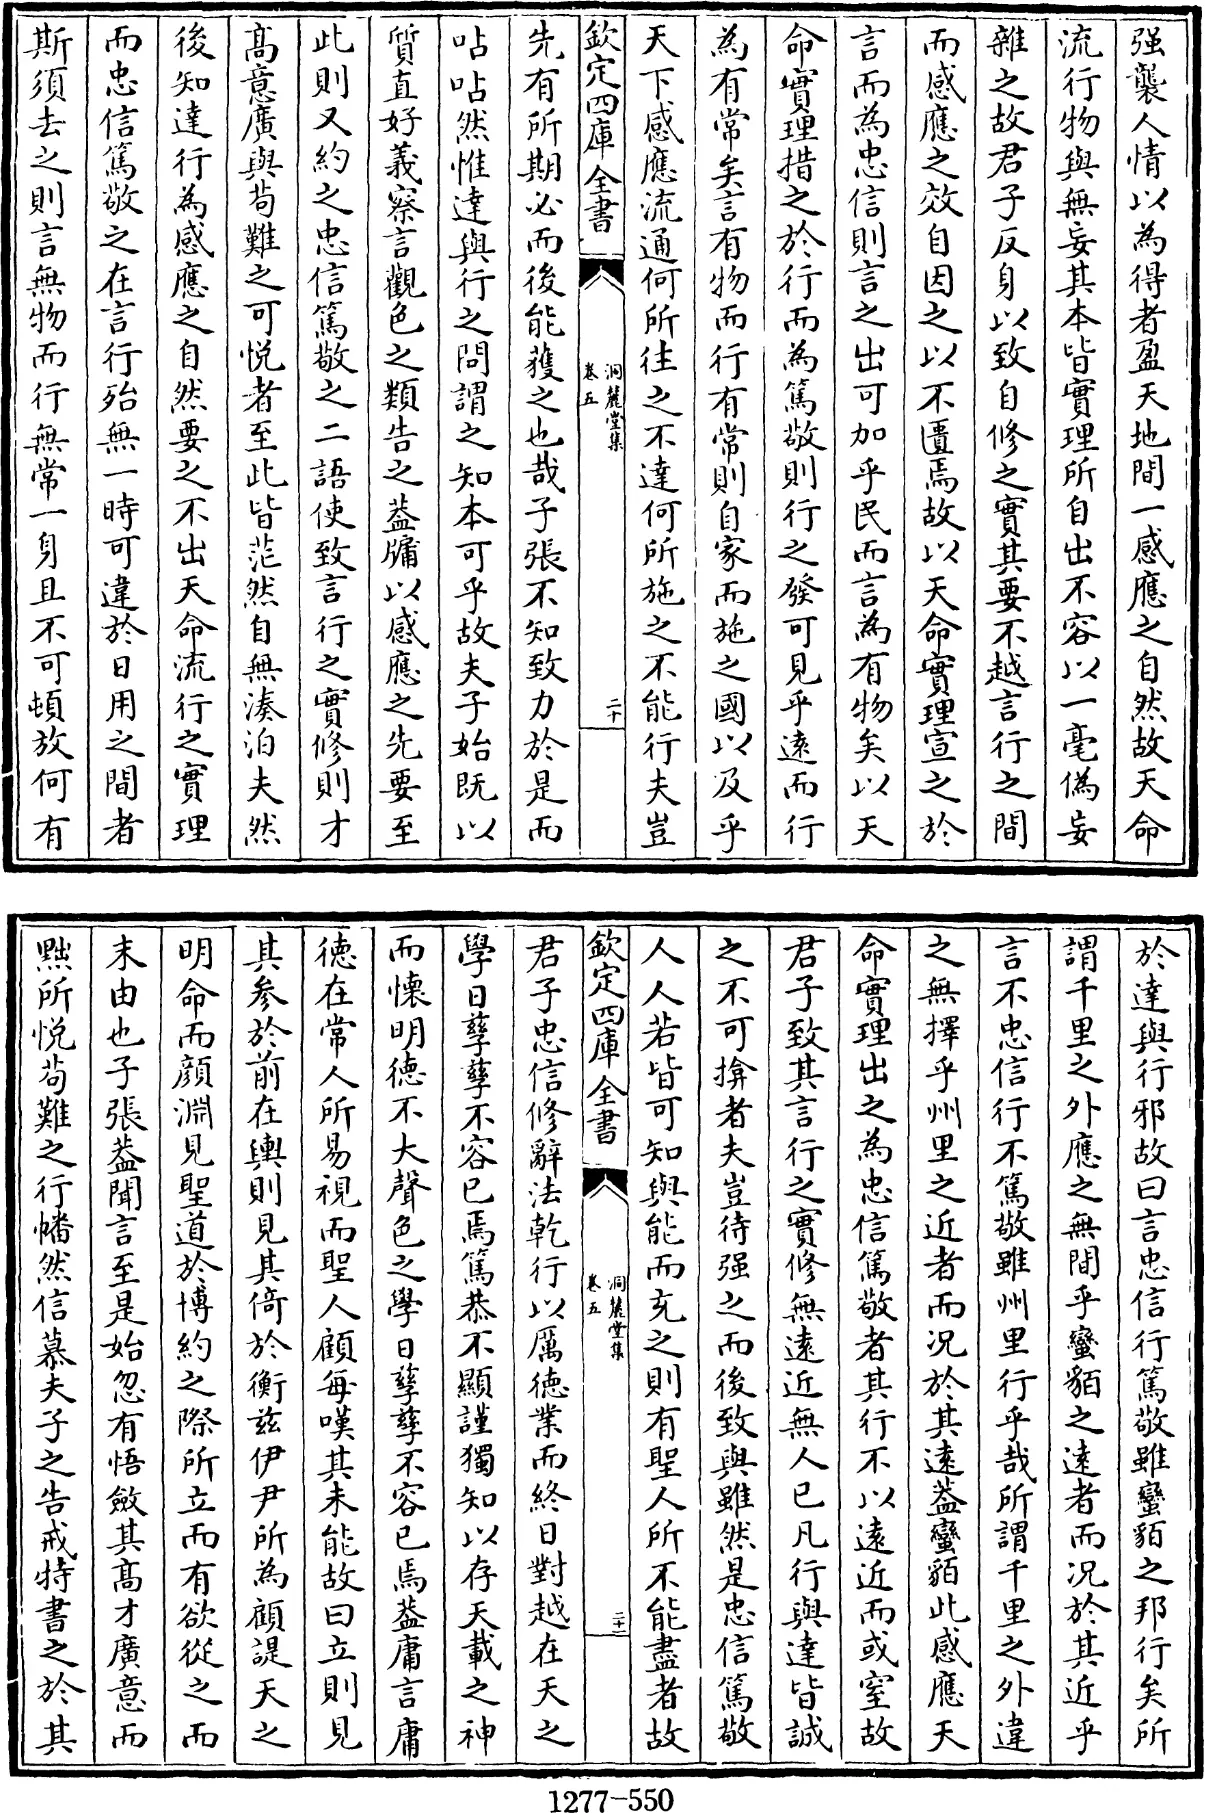 强襲人情以為得者盈天地間一感應之自然故天命
流行物與無妄其本皆實理所自出不容以一毫偽妄
雜之故君子反身以致自修之實其要不越言行之間
而感應之效自因之以不匱焉故以天命實理宣之於
言而為忠信則言之出可加乎民而言為有物矣以天
命實理措之於行而為篤敬則行之發可見乎遠而行
為有常矣言有物而行有常則自家而施之國以及乎
天下感應流通何所往之不達何所施之不能行夫豈
欽定四庫全書
洞麓堂集
卷五
二十
先有所期必而後能蒦之也哉子張不知致力於是而
呫呫然惟達與行之問謂之知本可乎故夫子始既以
質直好義察言觀色之類告之葢牖以感應之先要至
此則又約之忠信篤敬之二語使致言行之實修則才
髙意廣與茍難之可悦者至此皆茫然自無湊泊夫然
後知達行為感應之自然要之不出天命流行之實理
而忠信篤敬之在言行殆無一時可違於日用之間者
斯須去之則言無物而行無常一身且不可頓放何有
於達與行邪故曰言忠信行篤敬雖蠻貊之邦行矣所
謂千里之外應之無間乎蠻貊之遠者而况於其近乎
言不忠信行不篤敬雖州里行乎哉所謂千里之外違
之無擇乎州里之近者而况於其遠葢蠻貊此感應天
命實理出之為忠信篤敬者其行不以遠近而或窒故
君子致其言行之實修無遠近無人已凡行與達皆誠
之不可揜者夫豈待强之而後致與雖然是忠信篤敬
人人若皆可知與能而充之則有聖人所不能盡者故
欽定四庫全書
洞麓堂集
卷五
二十一
君子忠信修辭法乾行以厲徳業而終日對越在天之
學日孳孳不容已焉篤恭不顯謹獨知以存天載之神
而懐明徳不大聲色之學日孳孳不容已焉葢庸言庸
徳在常人所易視而聖人顧每嘆其未能故曰立則見
其参於前在輿則見其倚於衡兹伊尹所為顧諟天之
明命而顔淵見聖道於博約之際所立而有欲從之而
末由也子張葢聞言至是始忽有悟斂其髙才廣意而
黜所悦茍難之行幡然信慕夫子之告戒特書之於其
1277-550